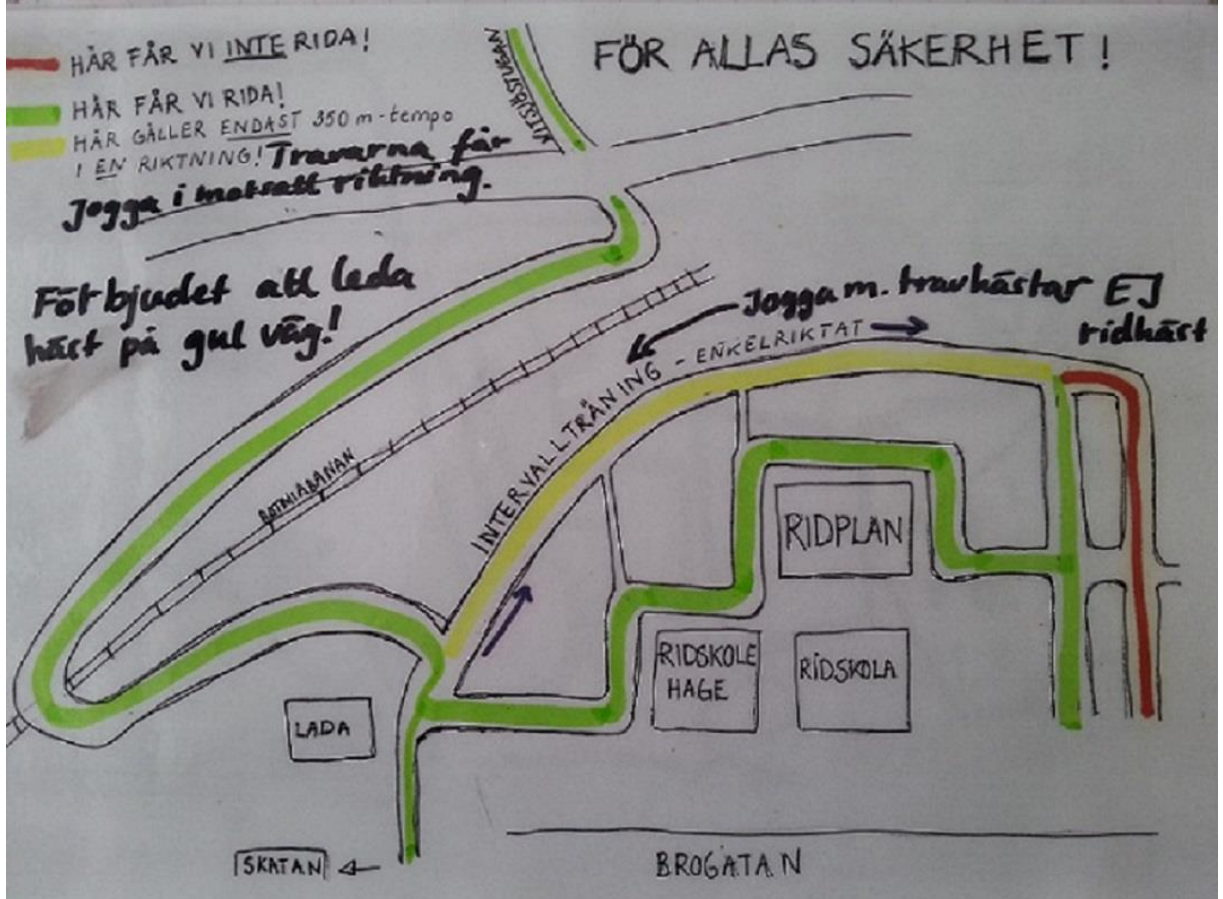 FÖR ALLAS SÄKERHET!
HÄR FÅR VI INTE RIDA!
HÄR FÅR VI RIDA!
HÄR GÄLLER ENDAST 350 m-tempo
I EN RIKTNING! Travarna får
Jogga i motsatt riktning.
VITSJÖSTUGAN
Förbjudet att leda
häst på gul väg!
Jogga m. travhästar EJ
ridhäst
INTERVALLTRÄNING - ENKELRIKTAT
BOTNIABANAN
RIDPLAN
RIDSKOLE
HAGE
RIDSKOLA
LADA
SKATAN
BROGATAN